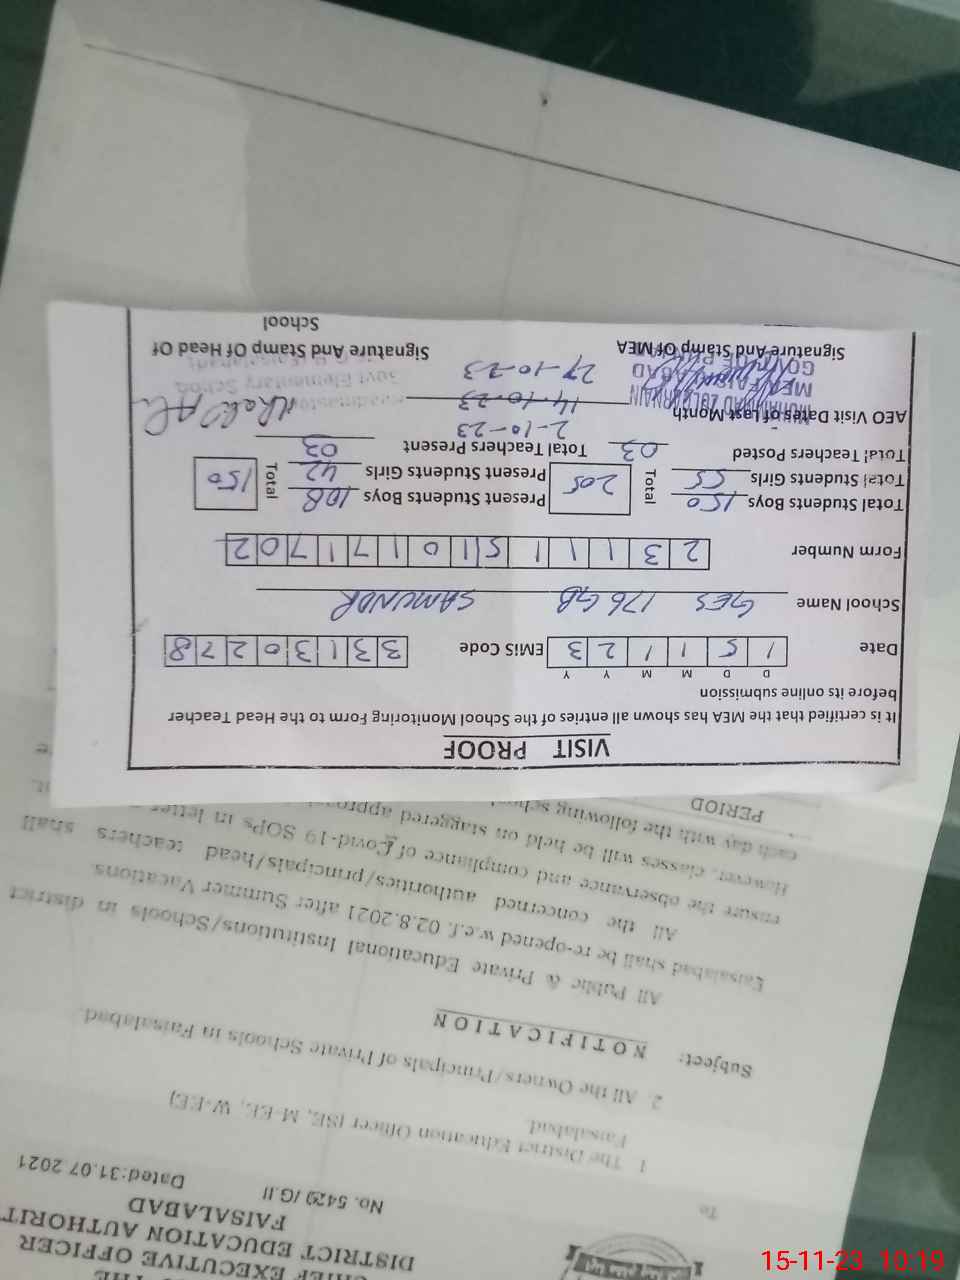 VISIT PROOF
It is certified that the MEA has shown all entries of the School Monitoring Form to the Head Teacher
before its online submission
D D M M Y Y
Date 1 5 1 1 2 3 EMIS Code 3 3 1 3 0 2 7 8
School Name GES 176 GB SAMUNDR
Form Number 2 3 1 1 1 5 1 0 1 7 1 7 0 2
Total Students Boys 150 Total 205 Present Students Boys 108 Total 150
Total Students Girls 55 Present Students Girls 42
Total Teachers Posted 03 Total Teachers Present 03
AEO Visit Dates of Last Month 2-10-23
14-10-23
27-10-23
Signature And Stamp Of MEA Signature And Stamp Of Head Of
School
CHIEF EXECUTIVE OFFICER
DISTRICT EDUCATION AUTHORIT
FAISALABAD
No. 5429 /G.II Dated:31.07 2021
To
1 The District Education Officer (SE, M-EE, W-EE)
Faisalabad.
2. All the Owners/Principals of Private Schools in Faisalabad.
Subject: NOTIFICATION
All Public & Private Educational Institutions/Schools in district
Faisalabad shall be re-opened w.e.f. 02.8.2021 after Summer Vacations
All the concerned authorities/principals/head teachers shall
ensure the observance and compliance of Covid-19 SOPs in letter
However, classes will be held on staggered
each day with the following
PERIOD
15-11-23 10:19